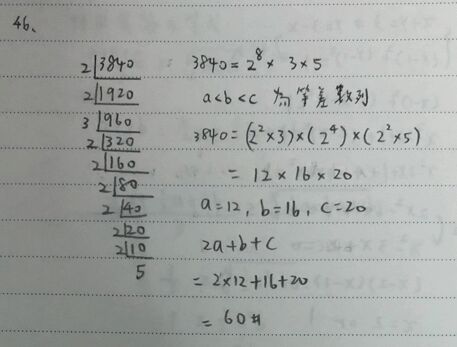 46.
2 | 3840
2 | 1920
3 | 960
2 | 320
2 | 160
2 | 80
2 | 40
2 | 20
2 | 10
5
∴ 3840 = 2^8 × 3 × 5
a < b < c 為等差數列
3840 = (2^2 × 3) × (2^4) × (2^2 × 5)
= 12 × 16 × 20
a = 12, b = 16, c = 20
2a + b + c
= 2 × 12 + 16 + 20
= 60 #